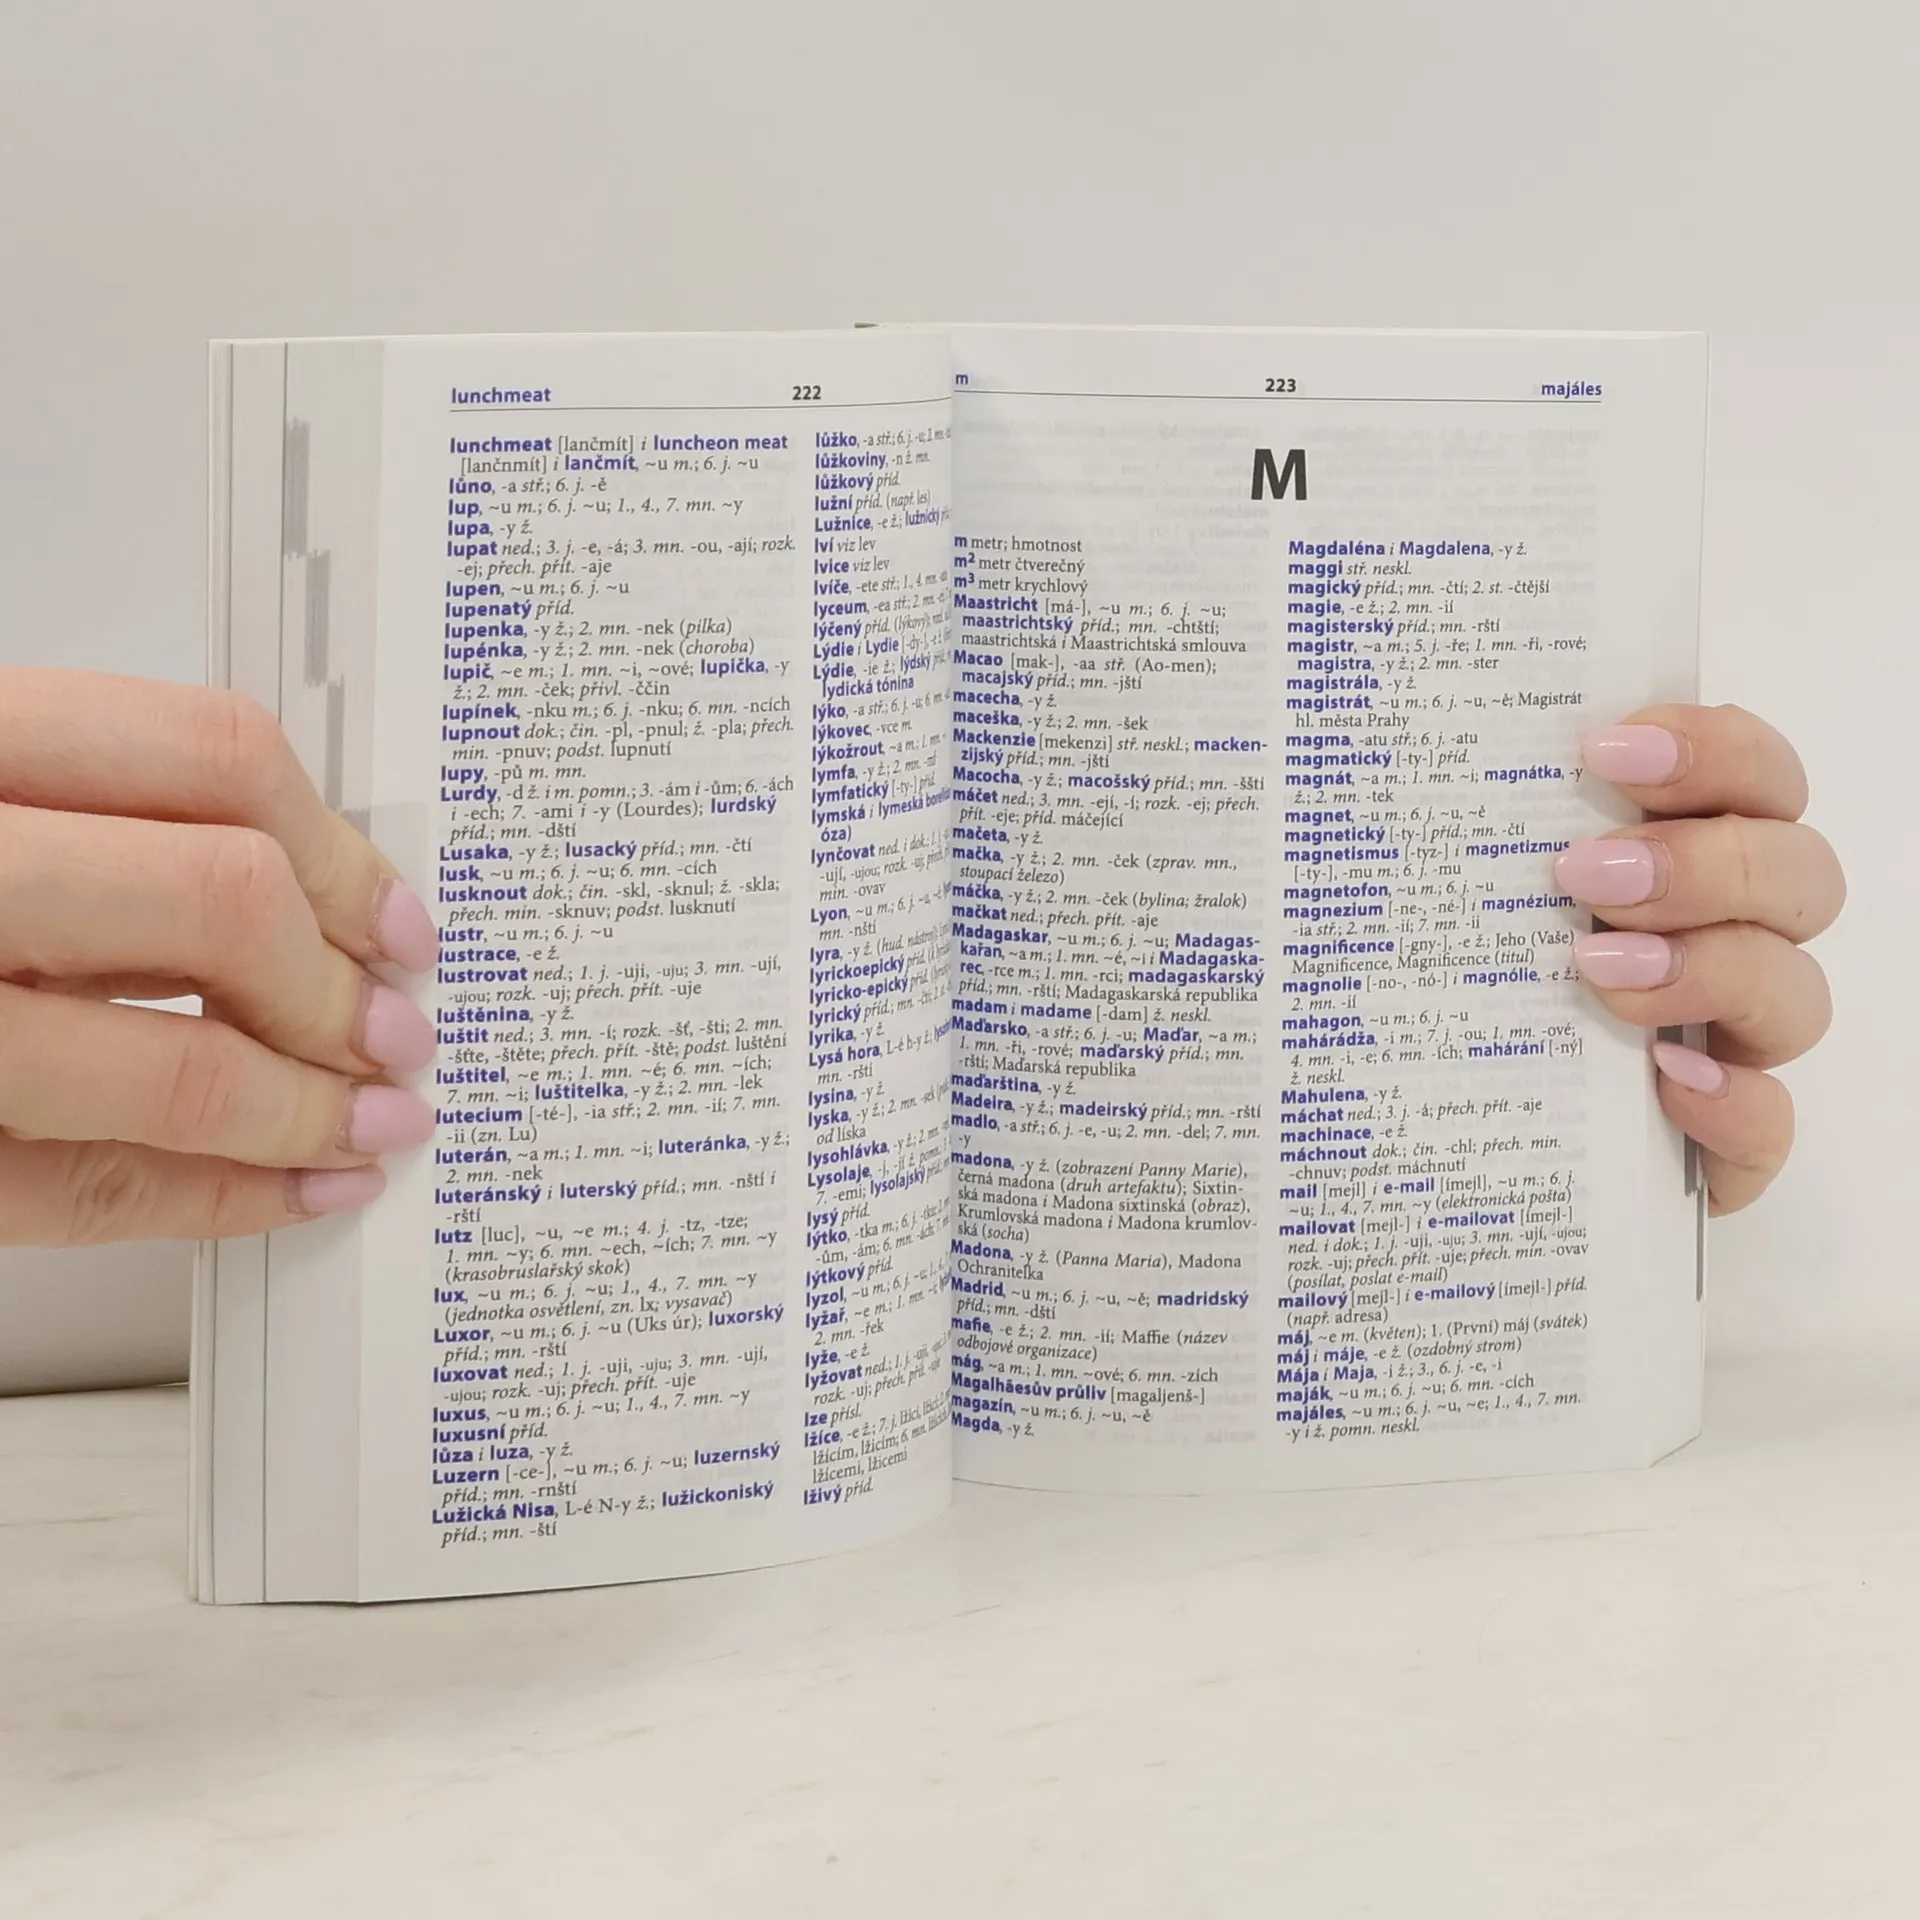 lunchmeat 222
lunchmeat [lančmít] i luncheon meat
[lančnmít] i lančmít, ~u m.; 6. j. ~u
lůno, -a stř.; 6. j. -ě
lup, ~u m.; 6. j. ~u; 1., 4., 7. mn. ~y
lupa, -y ž.
lupat ned.; 3. j. -e, -á; 3. mn. -ou, -ají; rozk.
-ej; přech. přít. -aje
lupen, ~u m.; 6. j. ~u
lupenatý příd.
lupenka, -y ž.; 2. mn. -nek (pilka)
lupénka, -y ž.; 2. mn. -nek (choroba)
lupič, ~e m.; 1. mn. ~i, ~ové; lupička, -y
ž.; 2. mn. -ček; přivl. -ččin
lupínek, -nku m.; 6. j. -nku; 6. mn. -ncích
lupnout dok.; čin. -pl, -pnul; ž. -pla; přech.
min. -pnuv; podst. lupnutí
lupy, -pů m. mn.
Lurdy, -d ž. i m. pomn.; 3. -ám i -ům; 6. -ách
i -ech; 7. -ami i -y (Lourdes); lurdský
příd.; mn. -dští
Lusaka, -y ž.; lusacký příd.; mn. -čtí
lusk, ~u m.; 6. j. ~u; 6. mn. -cích
lusknout dok.; čin. -skl, -sknul; ž. -skla;
přech. min. -sknuv; podst. lusknutí
lustr, ~u m.; 6. j. ~u
lustrace, -e ž.
lustrovat ned.; 1. j. -uji, -uju; 3. mn. -ují,
-ujou; rozk. -uj; přech. přít. -uje
luštěnina, -y ž.
luštit ned.; 3. mn. -í; rozk. -šť, -šti; 2. mn.
-šťte, -štěte; přech. přít. -ště; podst. luštění
luštitel, ~e m.; 1. mn. ~é; 6. mn. ~ích;
7. mn. ~i; luštitelka, -y ž.; 2. mn. -lek
lutecium [-té-], -ia stř.; 2. mn. -ií; 7. mn.
-ii (zn. Lu)
luterán, ~a m.; 1. mn. ~i; luteránka, -y ž.;
2. mn. -nek
luteránský i luterský příd.; mn. -nští i
-rští
lutz [luc], ~u, ~e m.; 4. j. -tz, -tze;
1. mn. ~y; 6. mn. ~ech, ~ích; 7. mn. ~y
(krasobruslařský skok)
lux, ~u m.; 6. j. ~u; 1., 4., 7. mn. ~y
(jednotka osvětlení, zn. lx; vysavač)
Luxor, ~u m.; 6. j. ~u (Uks úr); luxorský
příd.; mn. -rští
luxovat ned.; 1. j. -uji, -uju; 3. mn. -ují,
-ujou; rozk. -uj; přech. přít. -uje
luxus, ~u m.; 6. j. ~u; 1., 4., 7. mn. ~y
luxusní příd.
lůza i luza, -y ž.
Luzern [-ce-], ~u m.; 6. j. ~u; luzernský
příd.; mn. -rnští
Lužická Nisa, L-é N-y ž.; lužickoniský
příd.; mn. -ští
lůžko, -a stř.; 6. j. -u; 2. mn.
lůžkoviny, -n ž. mn.
lůžkový příd.
lužní příd. (např. les)
Lužnice, -e ž.; lužnický
lví viz lev
lvice viz lev
lvíče, -ete stř.; 1., 4. mn.
lyceum, -ea stř.; 2. mn.
lýčený příd. (lýkový);
Lýdie i Lydie [-dy-],
Lýdie, -ie ž.; lýdský
lydická tónina
lýko, -a stř.; 6. j. -u; 6. mn.
lýkovec, -vce m.
lýkožrout, ~a m.; 1. mn.
lymfa, -y ž.; 2. mn.
lymfatický [-ty-] příd.
lymská i lymeská
óza)
lynčovat ned. i dok.; 1. j.
-ují, -ujou; rozk. -uj;
min. -ovav
Lyon, ~u m.; 6. j. ~u,
mn. -nští
lyra, -y ž. (hud. nástroj);
lyrickoepický příd.
lyricko-epický příd.
lyrický příd.; mn. -čtí;
lyrika, -y ž.
Lysá hora, L-é h-y ž.;
mn. -rští
lysina, -y ž.
lyska, -y ž.; 2. mn. -sek
od liska
lysohlávka, -y ž.; 2. mn.
Lysolaje, -j,
7. -emi; lysolajský
lysý příd.
lýtko, -tka m.; 6. j. -tku;
-ům, -ám; 6. mn. -ách;
lýtkový příd.
lyzol, ~u m.; 6. j. ~u;
lyžař, ~e m.; 1. mn.
2. mn. -řek
lyže, -e ž.
lyžovat ned.; 1. j. -uji,
rozk. -uj; přech. přít. -uje
lze přísl.
lžíce, -e ž.; 7. j. lžící,
lžícím, lžicím; 6. mn.
lžícemi, lžicemi
lživý příd.
m 223 majáles
M
m metr; hmotnost
m² metr čtverečný
m³ metr krychlový
Maastricht [má-], ~u m.; 6. j. ~u;
maastrichtský příd.; mn. -chtští;
maastrichtská i Maastrichtská smlouva
Macao [mak-], -aa stř. (Ao-men);
macajský příd.; mn. -jští
macecha, -y ž.
maceška, -y ž.; 2. mn. -šek
Mackenzie [mekenzi] stř. neskl.; macken-
zijský příd.; mn. -jští
Macocha, -y ž.; macošský příd.; mn. -šští
máčet ned.; 3. mn. -ejí, -í; rozk. -ej; přech.
přít. -eje; příd. máčející
mačeta, -y ž.
mačka, -y ž.; 2. mn. -ček (zprav. mn.,
stoupací železo)
máčka, -y ž.; 2. mn. -ček (bylina; žralok)
mačkat ned.; přech. přít. -aje
Madagaskar, ~u m.; 6. j. ~u; Madagas-
kařan, ~a m.; 1. mn. ~é, ~i i Madagaska-
rec, -rce m.; 1. mn. -rci; madagaskarský
příd.; mn. -rští; Madagaskarská republika
madam i madame [-dam] ž. neskl.
Maďarsko, -a stř.; 6. j. -u; Maďar, ~a m.;
1. mn. -ři, -rové; maďarský příd.; mn.
-rští; Maďarská republika
maďarština, -y ž.
Madeira, -y ž.; madeirský příd.; mn. -rští
madlo, -a stř.; 6. j. -e, -u; 2. mn. -del; 7. mn.
-y
madona, -y ž. (zobrazení Panny Marie),
černá madona (druh artefaktu); Sixtin-
ská madona i Madona sixtinská (obraz),
Krumlovská madona i Madona krumlov-
ská (socha)
Madona, -y ž. (Panna Maria), Madona
Ochranitelka
Madrid, ~u m.; 6. j. ~u, ~ě; madridský
příd.; mn. -dští
mafie, -e ž.; 2. mn. -ií; Maffie (název
odbojové organizace)
mág, ~a m.; 1. mn. ~ové; 6. mn. -zích
Magalhãesův průliv [magaljenš-]
magazín, ~u m.; 6. j. ~u, ~ě
Magda, -y ž.
Magdaléna i Magdalena, -y ž.
maggi stř. neskl.
magický příd.; mn. -čtí; 2. st. -čtější
magie, -e ž.; 2. mn. -ií
magisterský příd.; mn. -rští
magistr, ~a m.; 5. j. -ře; 1. mn. -ři, -rové;
magistra, -y ž.; 2. mn. -ster
magistrála, -y ž.
magistrát, ~u m.; 6. j. ~u, ~ě; Magistrát
hl. města Prahy
magma, -atu stř.; 6. j. -atu
magmatický [-ty-] příd.
magnát, ~a m.; 1. mn. ~i; magnátka, -y
ž.; 2. mn. -tek
magnet, ~u m.; 6. j. ~u, ~ě
magnetický [-ty-] příd.; mn. -čtí
magnetismus [-tyz-] i magnetizmus
[-ty-], -mu m.; 6. j. -mu
magnetofon, ~u m.; 6. j. ~u
magnezium [-ne-, -né-] i magnézium,
-ia stř.; 2. mn. -ií; 7. mn. -ii
magnificence [-gny-], -e ž.; Jeho (Vaše)
Magnificence, Magnificence (titul)
magnolie [-no-, -nó-] i magnólie, -e ž.;
2. mn. -ií
mahagon, ~u m.; 6. j. ~u
mahárádža, -i m.; 7. j. -ou; 1. mn. -ové;
4. mn. -i, -e; 6. mn. -ích; mahárání [-ný]
ž. neskl.
Mahulena, -y ž.
máchat ned.; 3. j. -á; přech. přít. -aje
machinace, -e ž.
máchnout dok.; čin. -chl; přech. min.
-chnuv; podst. máchnutí
mail [mejl] i e-mail [ímejl], ~u m.; 6. j.
~u; 1., 4., 7. mn. ~y (elektronická pošta)
mailovat [mejl-] i e-mailovat [ímejl-]
ned. i dok.; 1. j. -uji, -uju; 3. mn. -ují, -ujou;
rozk. -uj; přech. přít. -uje; přech. min. -ovav
(posílat, poslat e-mail)
mailový [mejl-] i e-mailový [ímejl-] příd.
(např. adresa)
máj, ~e m. (květen); 1. (První) máj (svátek)
máj i máje, -e ž. (ozdobný strom)
Mája i Maja, -i ž.; 3., 6. j. -e, -i
maják, ~u m.; 6. j. ~u; 6. mn. -cích
majáles, ~u m.; 6. j. ~u, ~e; 1., 4., 7. mn.
-y i ž. pomn. neskl.